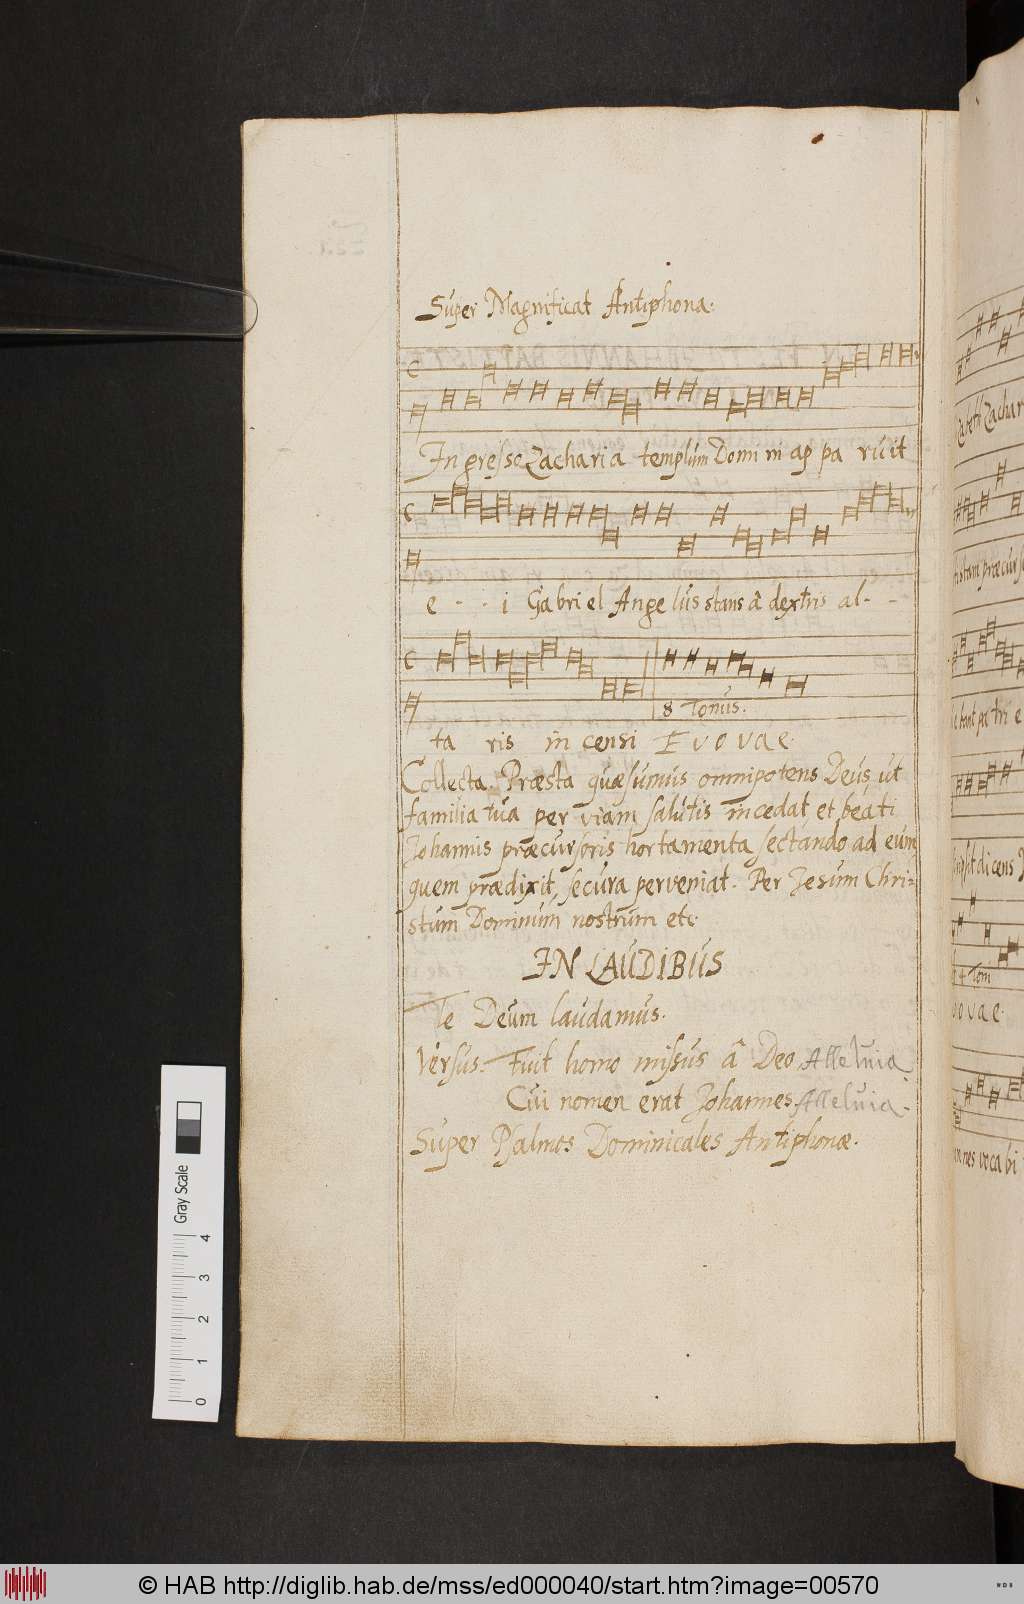 Super Magnificat Antiphona.
Ingresso Zacharia templum Domi ni ap pa ruit
e - - i Gabriel Ange lus stans â dextris al - -
8 Tonus.
ta ris in censi Evovae.
Collecta. Præsta quæsumus omnipotens Deus, ut
familia tua per viam salutis incedat, et beati
Johannis præcursoris hortamenta sectando ad eum
quem prædixit, secura perveniat. Per Jesum Chri=
stum Dominum nostrum etc.
IN LAUDIBUS
Te Deum laudamus.
Versus. Fuit homo missus â Deo Alleluia.
Cui nomen erat Johannes Alleluia.
Super Psalmos Dominicales Antiphonæ.
Zachar
præcurs
dicens
4 Tom
ovae.
nes voca bi
Gray Scale
0 1 2 3 4
© HAB http://diglib.hab.de/mss/ed000040/start.htm?image=00570